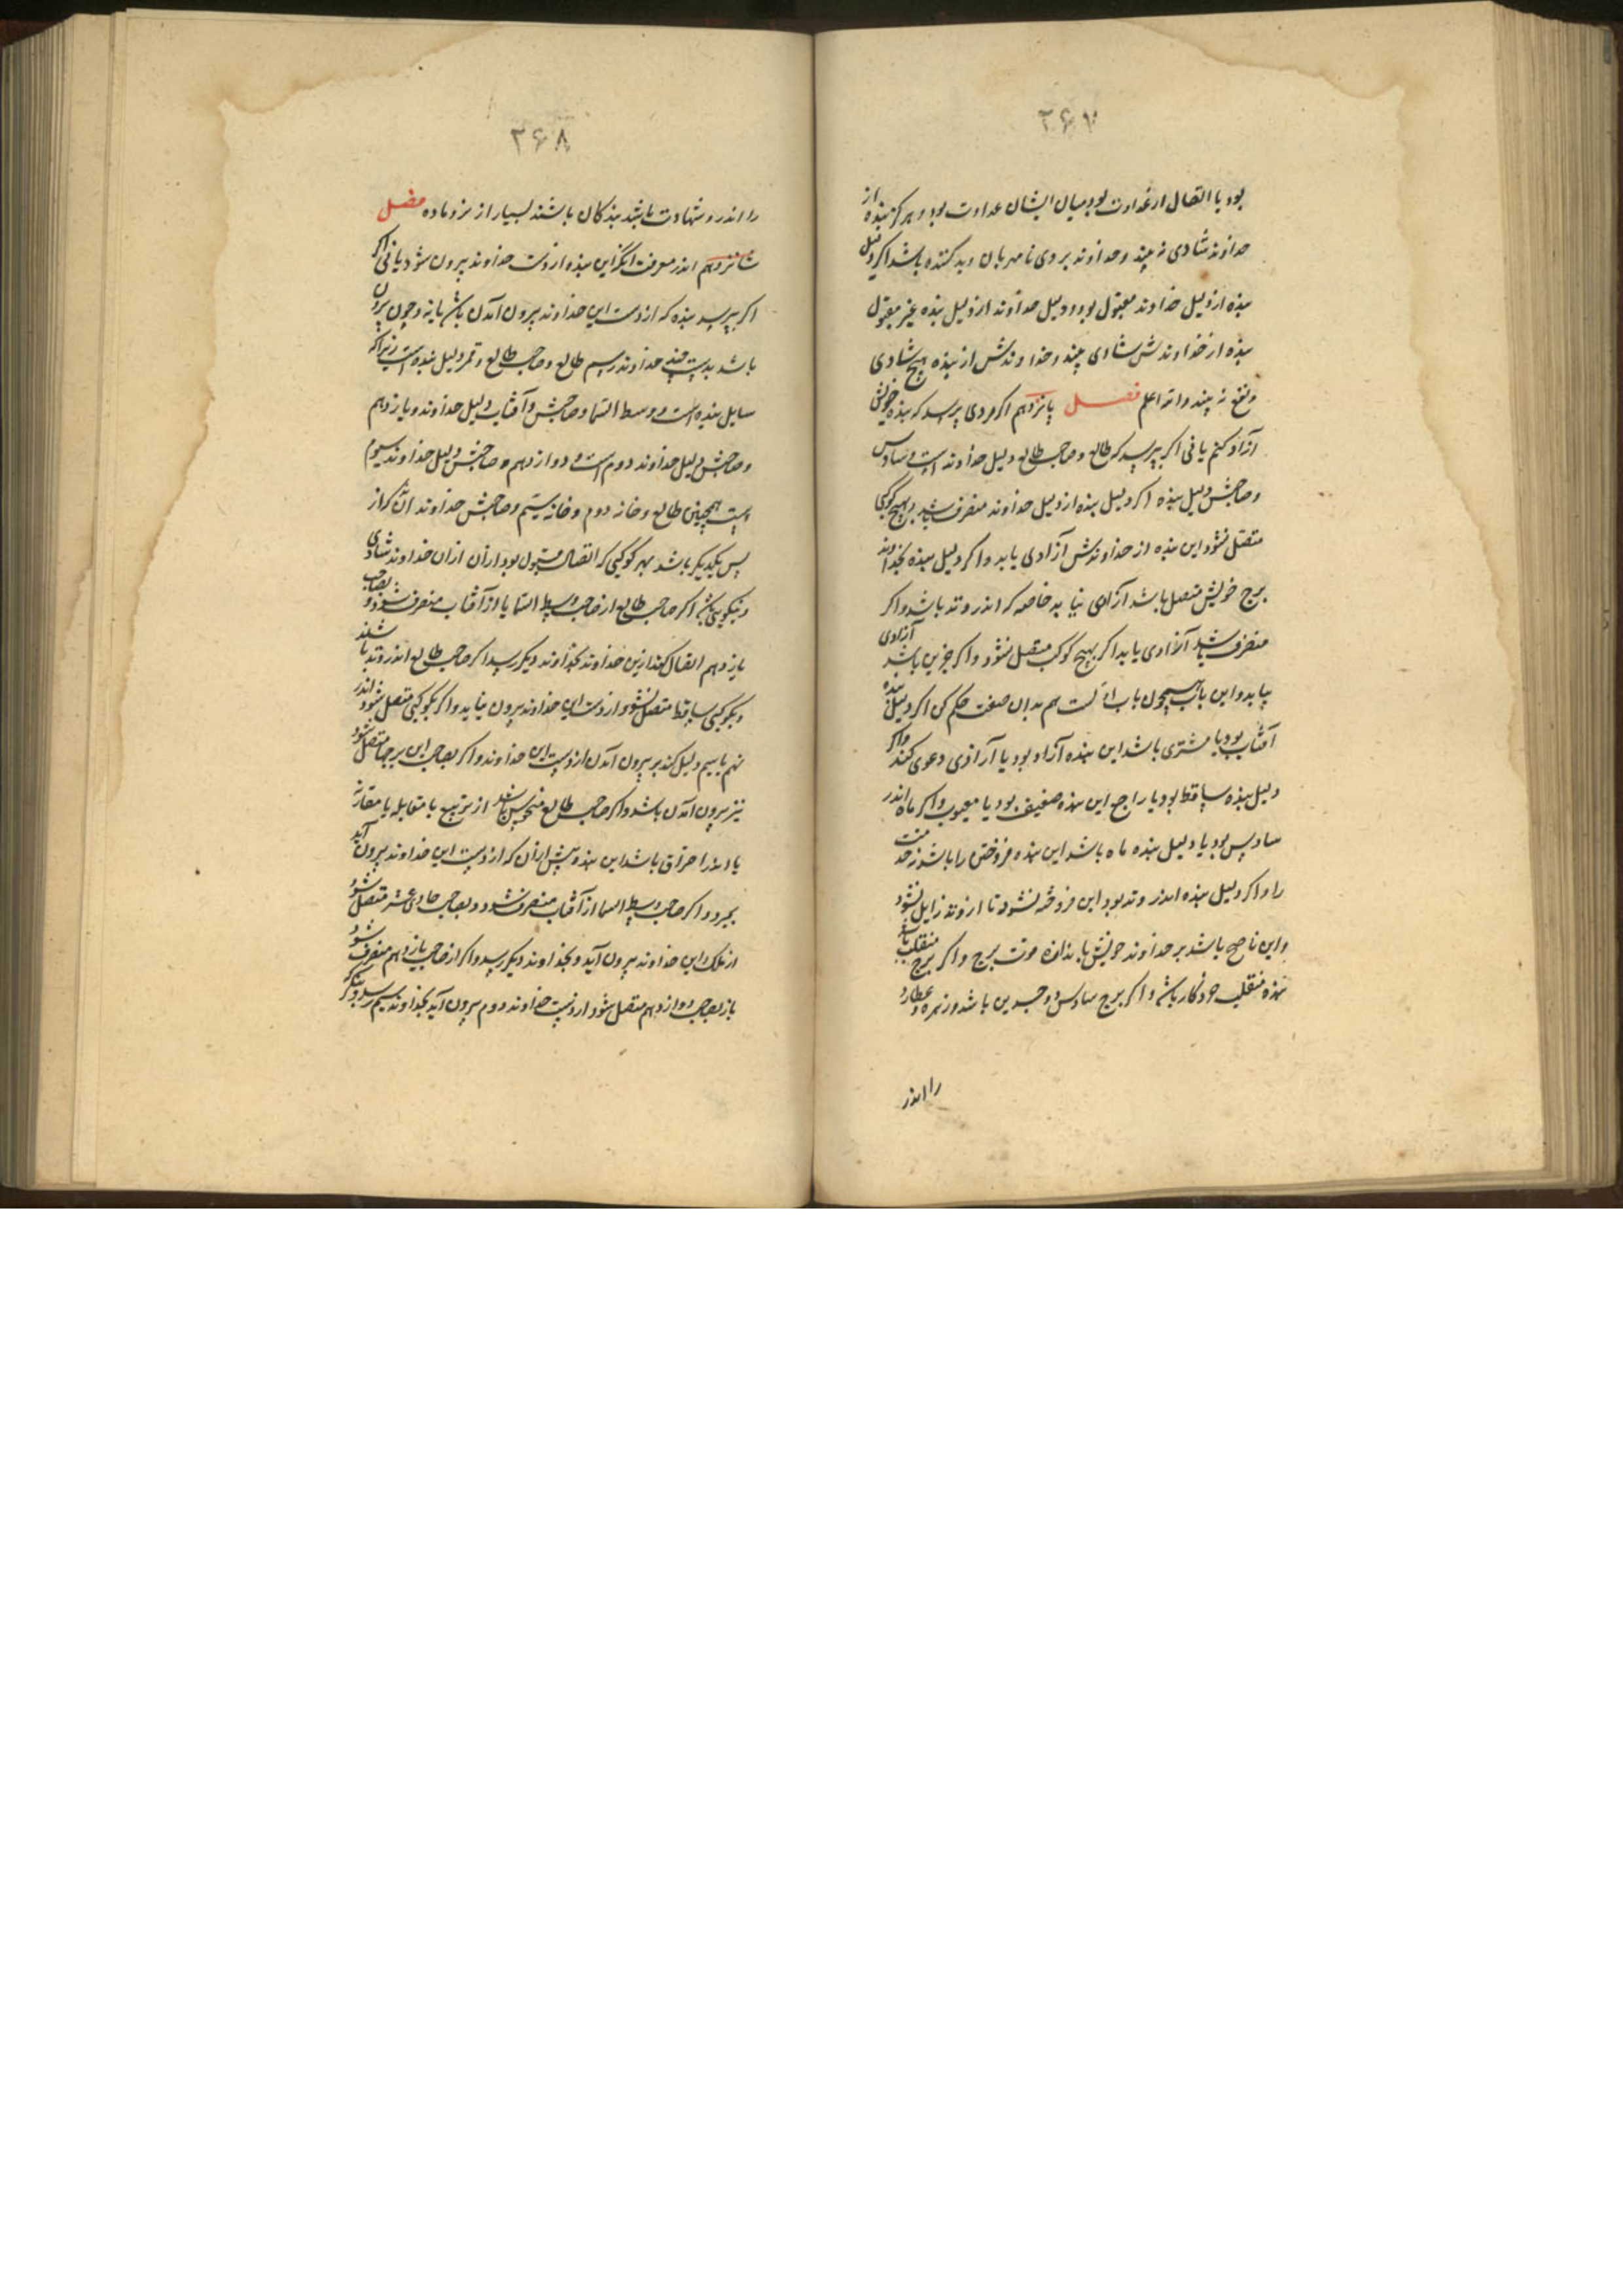 ۲۶۷
بود یا اتصال از عداوت بود میان ایشان عداوت بود و هرگز بنده از
خداوند شادی نه بیند و خداوند بر وی نامهربان و بد کننده باشد اکر دلیل
بنده از دلیل خداوند مقبول بود و دلیل خداوند از دلیل بنده غیر مقبول
بنده از خداوندش شادی بیند و خداوندش از بنده هیچ شادی
و نفع نه بیند و الله اعلم فصل پانزدهم اکر مردی پرسد که بنده خویش
آزاد کنم یا نی اکر بپرسد که طالع و صاحب طالع دلیل خداوند است و سادس
و صاحبش دلیل بنده اکر دلیل بنده از دلیل خداوند منصرف باشد بهیچ کوکبی
متصل نشود این بنده از خداوندش آزادی یابد و اکر دلیل بنده بخداوند
برج خویش متصل باشد آزادی نیابد خاصه که اندر وتد باشد و اکر
منصرف باشد آزادی یابد اکر بهیچ کوکب متصل نشود و اکر جز این باشد آزادی
بیابد و این باب همچون باب است هم بدان صفت حکم کن اکر دلیل بنده
آفتاب بود یا مشتری باشد این بنده آزاد بود یا آزادی دعوی کند و اکر
دلیل بنده ساقط بود یا راجع این بنده ضعیف بود یا معیوب و اکر ماه اندر
سادس بود یا دلیل بنده ماه باشد این بنده فروختن را باشد نه خدمت
را و اکر دلیل بنده اندر وتد بود این فروخته نشود تا از وتد زایل نشود
و این ناصح باشد بر خداوند خویش باندازه قوت برج و اکر برج منقلب باشد
بنده منقلب خودکار باشد و اکر برج سادس ذو جسدین باشد و زهره و عطارد
را اندر
۲۶۸
را اندر و شهادت باشد بندکان باشند بسیار از نر و ماده فصل
شانزدهم اندر معرفت انکه این بنده از دست خداوند بیرون شود یا نی اکر
اکر بپرسد بنده که از دست این خداوند بیرون آمدن باشد یا نه و چون بیرون
باشد بدست چند خداوند رسم طالع و صاحب طالع و قمر دلیل بنده است زیرا که
سایل بنده است و وسط السما و صاحبش و آفتاب دلیل خداوند و یازدهم
و صاحبش دلیل خداوند دوم است و دوازدهم و صاحبش دلیل خداوند سیوم
است همچنین طالع و خانه دوم و خانه سیم و صاحبش خداوند آن کز
پس یکدیکر باشد بهر کوکبی که اتصال مقبول بود از آن ازان خداوند شادی
و نیکویی بیند اکر صاحب طالع از صاحب وسط السما یا از آفتاب منصرف شود و بصاحب
یازدهم اتصال کند ازین خداوند بخداوند دیکر رسد اکر صاحب طالع اندر وتد باشند
و بکوکبی ساقط متصل نشود از دست این خداوند بیرون نیاید و اکر بکوکبی متصل شود اندر
نهم یا سیم دلیل کند بر بیرون آمدن از دست این خداوند و اکر بصاحب این برجها متصل شود
نیز بیرون آمدن باشد و اکر صاحب طالع منحوس باشد از تربیع یا مقابله یا مقارنه
یا اندر احتراق باشد این بنده پیش از آن که از دست این خداوند بیرون آید
بمیرد و اکر صاحب وسط السما از آفتاب منصرف شود و بصاحب حادی عشر متصل شود
از ملک این خداوند بیرون آید و بخداوند دیکر رسد و اکر از صاحب یازدهم منصرف شود
باز بصاحب دوازدهم متصل شود از دست خداوند دوم بیرون آید بخداوند سیم رسد و بنکر